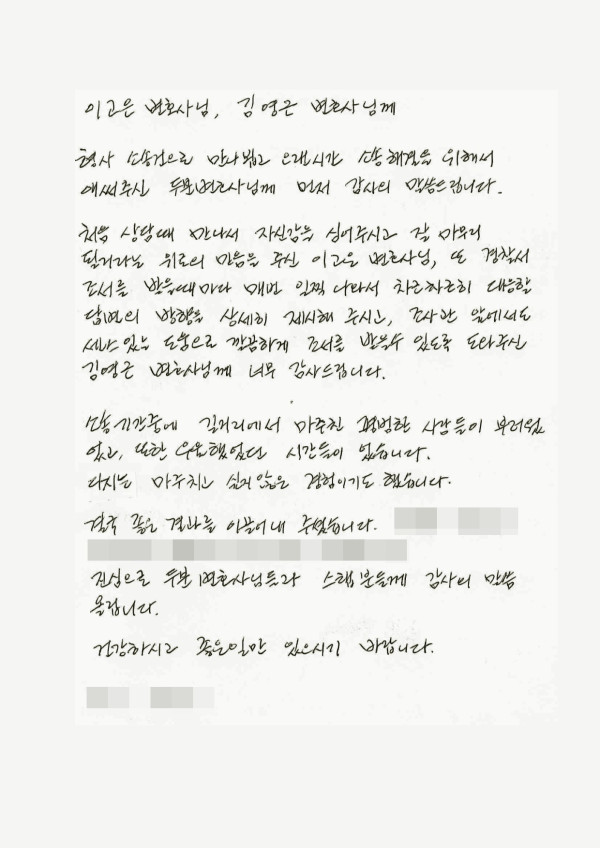 이고은 변호사님, 김영근 변호사님께
형사 소송건으로 만나뵙고 오랜시간 소송해결을 위해서
애써주신 두분변호사님께 먼저 감사의 말씀드립니다.
처음 상담때 만나서 자신감을 심어주시고 잘 마무리
될거라는 위로의 마음을 주신 이고은 변호사님, 또 경찰서
조서를 받을때마다 매번 일찍 나와서 차근차근히 대응할
답변의 방향을 상세히 제시해 주시고, 조사관 앞에서도
세나있는 도움으로 깔끔하게 조서를 받을수 있도록 도와주신
김영근 변호사님께 너무 감사드립니다.
소송기간중에 길거리에서 마주친 평범한 사람들이 부러웠
었고, 또한 우울했었던 시간들이 었습니다.
다시는 마주치고 싶지않은 경험이기도 했습니다.
결국 좋은 결과를 이끌어내 주셨습니다.
진심으로 두분 변호사님들과 스탭분들께 감사의 말씀
올립니다.
건강하시고 좋은일만 있으시기 바랍니다.